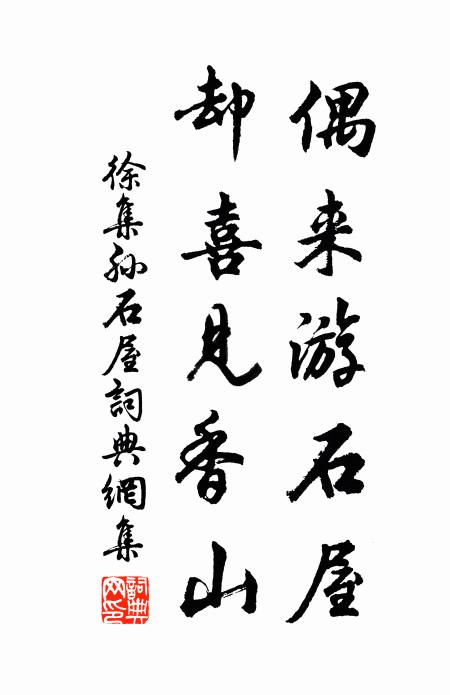 偶来游石屋
却喜見香山
徐集孙石屋詞典網集
詞典網印